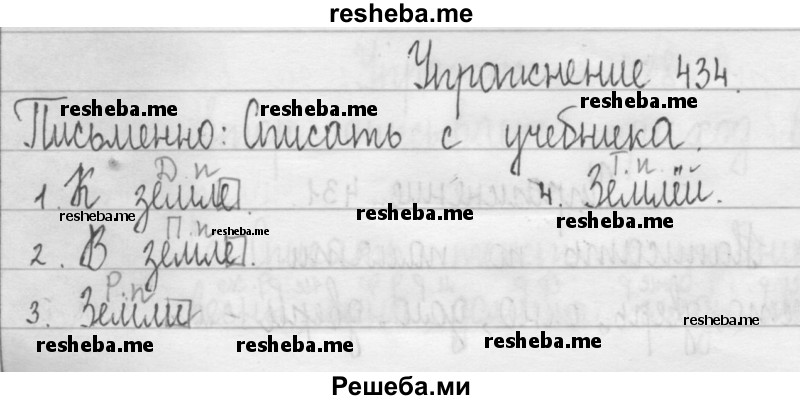 resheba.me
Упражнение 434.
resheba.me resheba.me resheba.me
Письменно: Списать с учебника.
Д.п Т.п.
1. К земле. 4. Землёй.
resheba.me resheba.me resheba.me
П.п resheba.me
2. В земле.
Р.п
3. Земли
resheba.me resheba.me resheba.me resheba.me
Решеба.ми